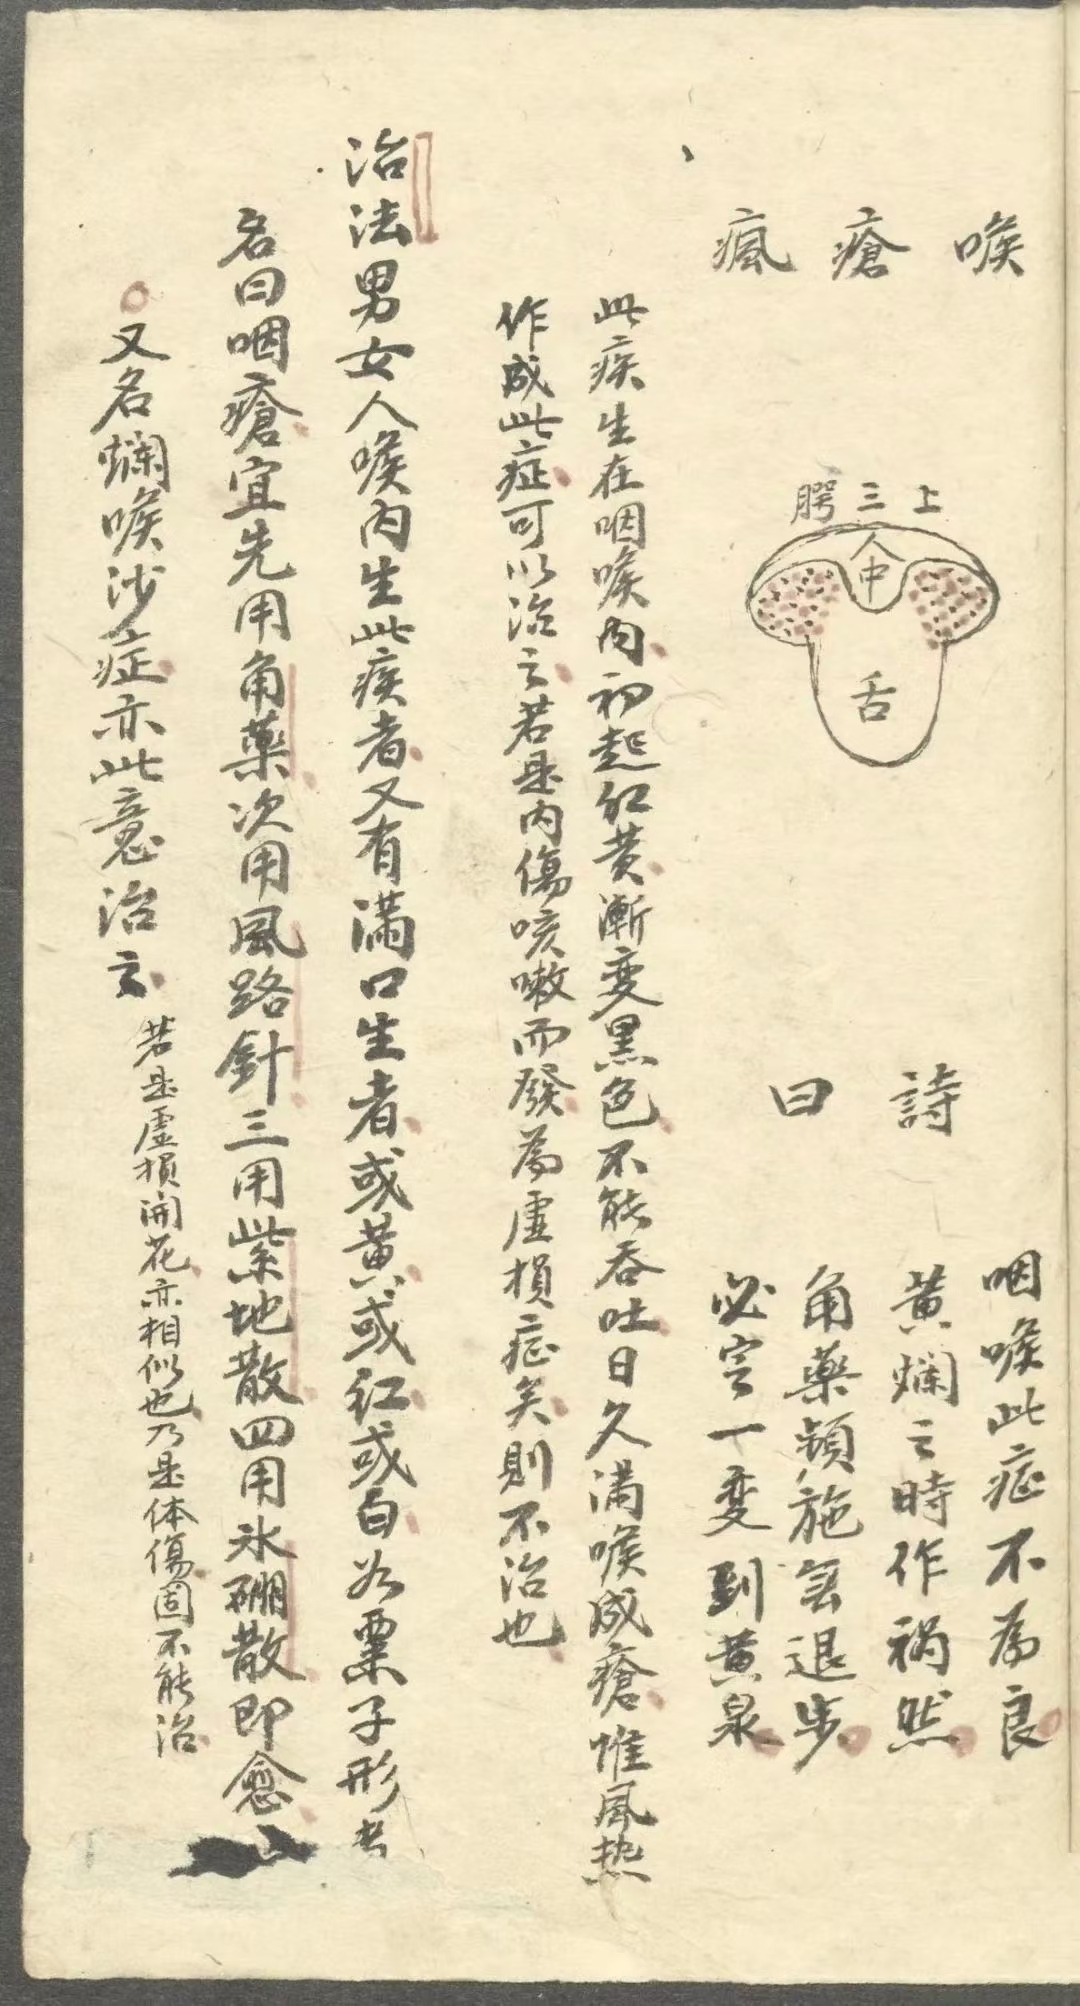 喉瘡瘋
上三腭
人中
舌
詩曰
咽喉此症不為良
黄爛之時作祸然
角藥頻施無退步
必定一变到黄泉
此疾生在咽喉内初起红黄漸变黑色不能吞吐日久满喉成瘡惟風热
作成此症可以治之若是内傷咳嗽而發為虛損症矣則不治也
治法男女人喉内生此疾者又有满口生者或黄或红或白如粟子形者
名曰咽瘡宜先用角藥次用風路針三用紫地散四用氷硼散即愈
又名爛喉沙症亦此意治之
若是虛損開花亦相似也乃是体傷固不能治